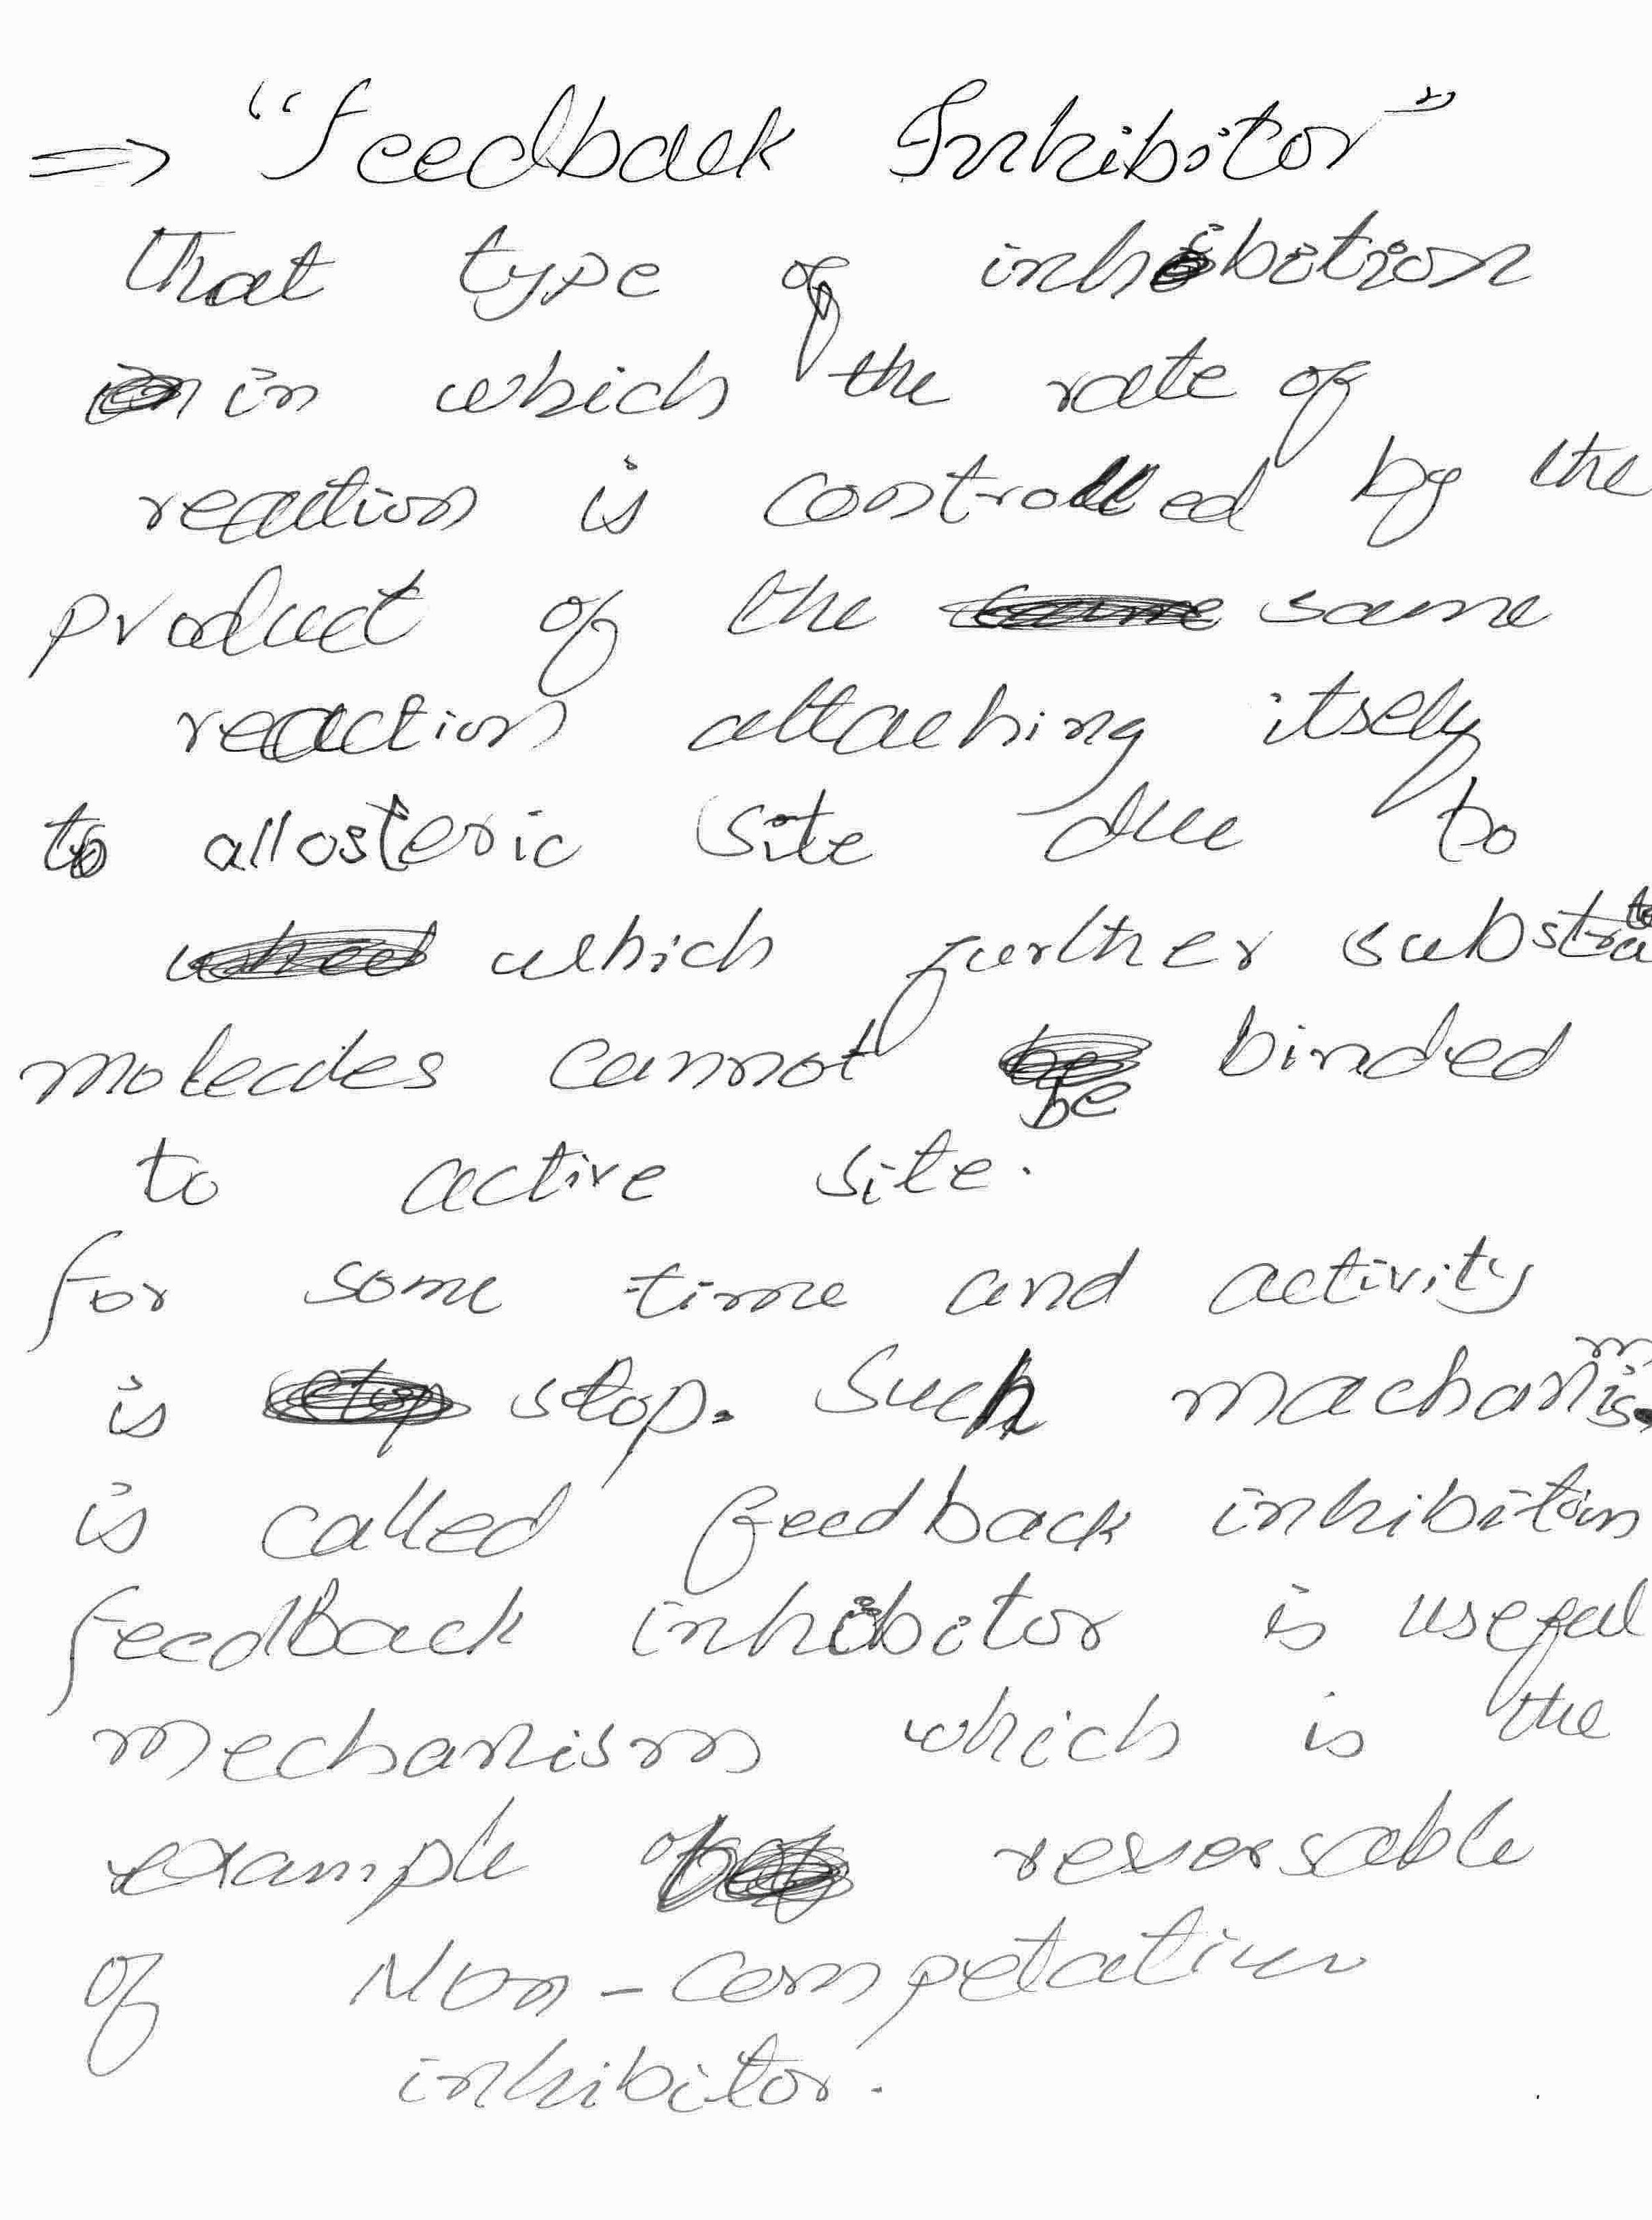 ⇒ "Feedback Inhibitor"
that type of inhibition
in which the rate of
reaction is controlled by the
product of the same
reaction attaching itself
to allosteric site due to
which further substrate
molecules cannot be binded
to active site.
for some time and activity
is stop. Such machanism
is called feedback inhibition
feedback inhibitor is useful
mechanism which is the
example reversable
of Non-competative
inhibitor.